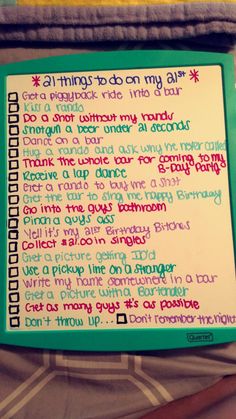 * 21 things to do on my 21st *
Get a piggyback ride into a bar
Kiss a rando
Do a shot without my hands
Shotgun a beer under 21 seconds
Dance on a bar
Hug a rando and ask why he never called
Thank the whole bar for coming to my B-Day Party
Receive a lap dance
Get a rando to buy me a shot
Get the bar to sing me happy Birthday!
Go into the guys bathroom
Pinch a guys ass
Yell it's my 21st Birthday Bitches
Collect $21.00 in singles
Get a picture getting ID'd
Use a pickup line on a stranger
Write my name somewhere in a bar
Get a picture with a Bartender
Get as many guys #'s as possible
Don't throw up... Don't remember the night
Quartet